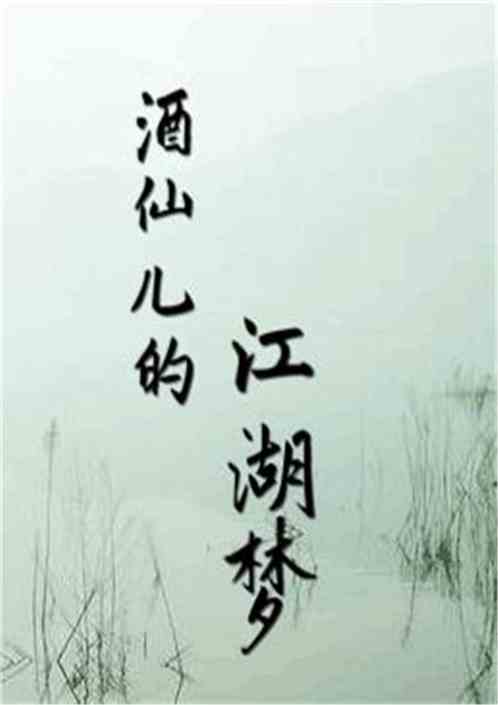 酒仙儿的
江湖梦